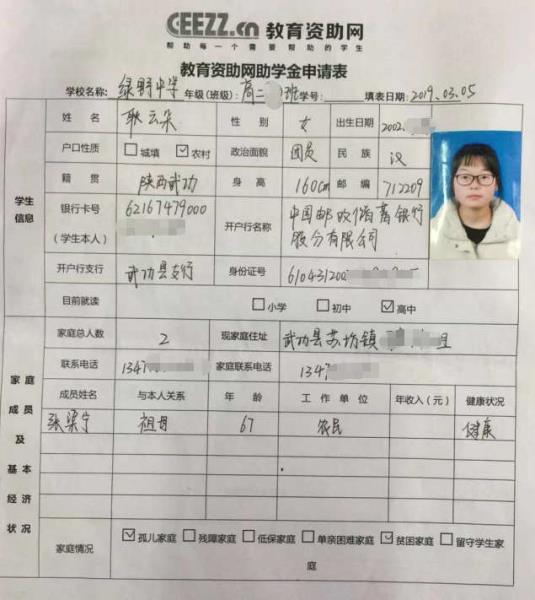 CEEZZ.cn 教育资助网
帮助每一个需要帮助的学生
教育资助网助学金申请表
学校名称: 绿野中学 年级(班级): 高二 班 学号: 填表日期: 2019.03.05
姓名 耿云朵 性别 女 出生日期 2002.
户口性质 城填 农村 政治面貌 团员 民族 汉
籍贯 陕西武功 身高 160cm 邮编 712209
学生信息
银行卡号 (学生本人) 62167479000 开户行名称 中国邮政储蓄银行股份有限公司
开户行支行 武功县支行 身份证号 610431200
目前就读 小学 初中 高中
家庭总人数 2 现家庭住址 武功县苏坊镇 组
联系电话 1347 家庭联系电话 1347
家庭成员及基本经济状况
成员姓名 与本人关系 年龄 工作单位 年收入(元) 健康状况
张梁宁 祖母 67 农民 健康
家庭情况 孤儿家庭 残障家庭 低保家庭 单亲困难家庭 贫困家庭 留守学生家
庭